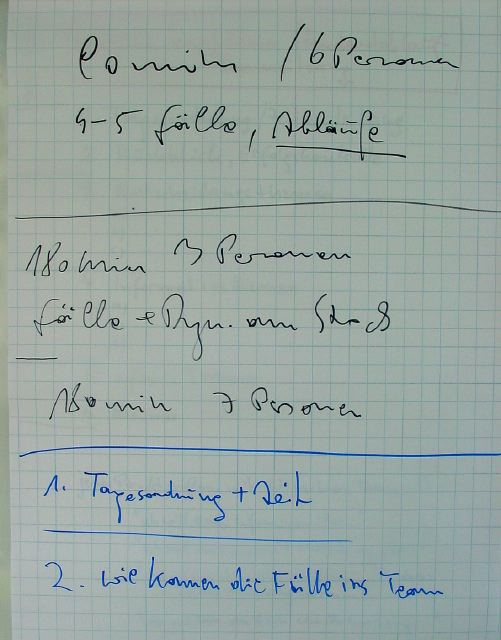 90 min / 6 Personen
4-5 Fälle, Abläufe
180 min 3 Personen
Fälle + Dyn. am
180 min 7 Personen
1. Tagesordnung + Zeit
2. Wie kommen die Fälle ins Team